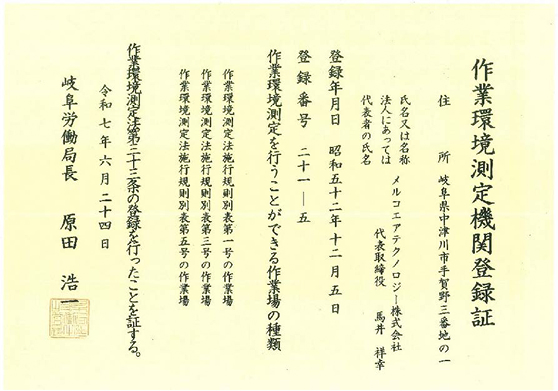 作業環境測定機関登録証
住所 岐阜県中津川市手賀野三番地の一
氏名又は名称
法人にあっては
代表者の氏名
メルコエアテクノロジー株式会社
代表取締役 馬井 祥幸
登録年月日 昭和五十二年十二月五日
登録番号 二十一―五
作業環境測定を行うことができる作業場の種類
作業環境測定法施行規則別表第一号の作業場
作業環境測定法施行規則別表第三号の作業場
作業環境測定法施行規則別表第五号の作業場
作業環境測定法第三十三条の登録を行ったことを証する。
令和七年六月二十四日
岐阜労働局長 原田 浩一